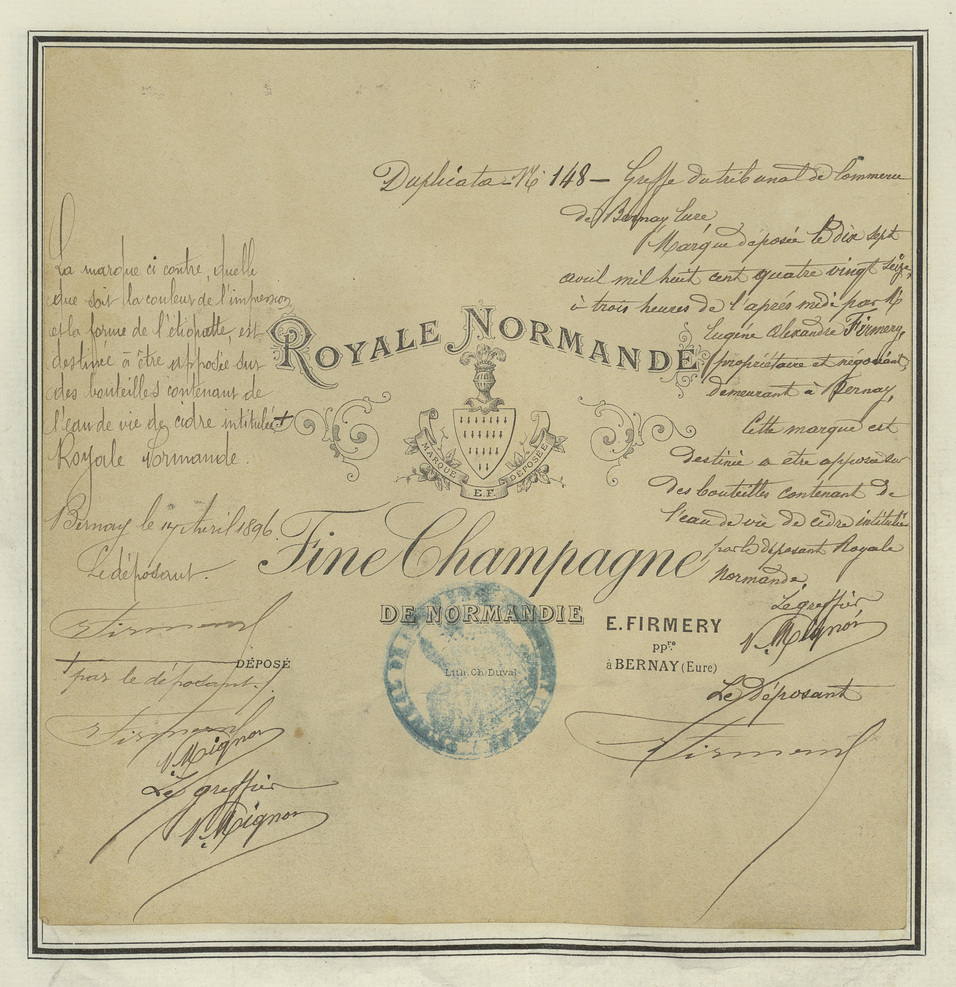 Duplicata N° 148 – Greffe du tribunal de Commerce
de Bernay Eure
Marque déposée le dix sept
avril mil huit cent quatre vingt seize,
à trois heures de l'après midi par M
Eugène Alexandre Firmery,
propriétaire et négociant,
demeurant à Bernay,
Cette marque est
destinée a etre apposée sur
des bouteilles contenant de
l'eau de vie de cidre intitulée
par le déposant Royale
Normande
Le greffier
V. Mignon
Le déposant
Firmery
La marque ci contre, quelle
que soit la couleur de l'impression
et la forme de l'étiquette, est
destinée à être apposée sur
des bouteilles contenant de
l'eau de vie de cidre intitulée +
Royale Normande.
Bernay le 17 Avril 1896.
Le déposant.
Firmery
+ par le déposant.
Firmery
V. Mignon
Le greffier
V. Mignon
ROYALE NORMANDE
MARQUE DÉPOSÉE
E.F.
Fine Champagne
DE NORMANDIE
E. FIRMERY
ppre
à BERNAY (Eure)
DÉPOSÉ
Lith. Ch. Duval